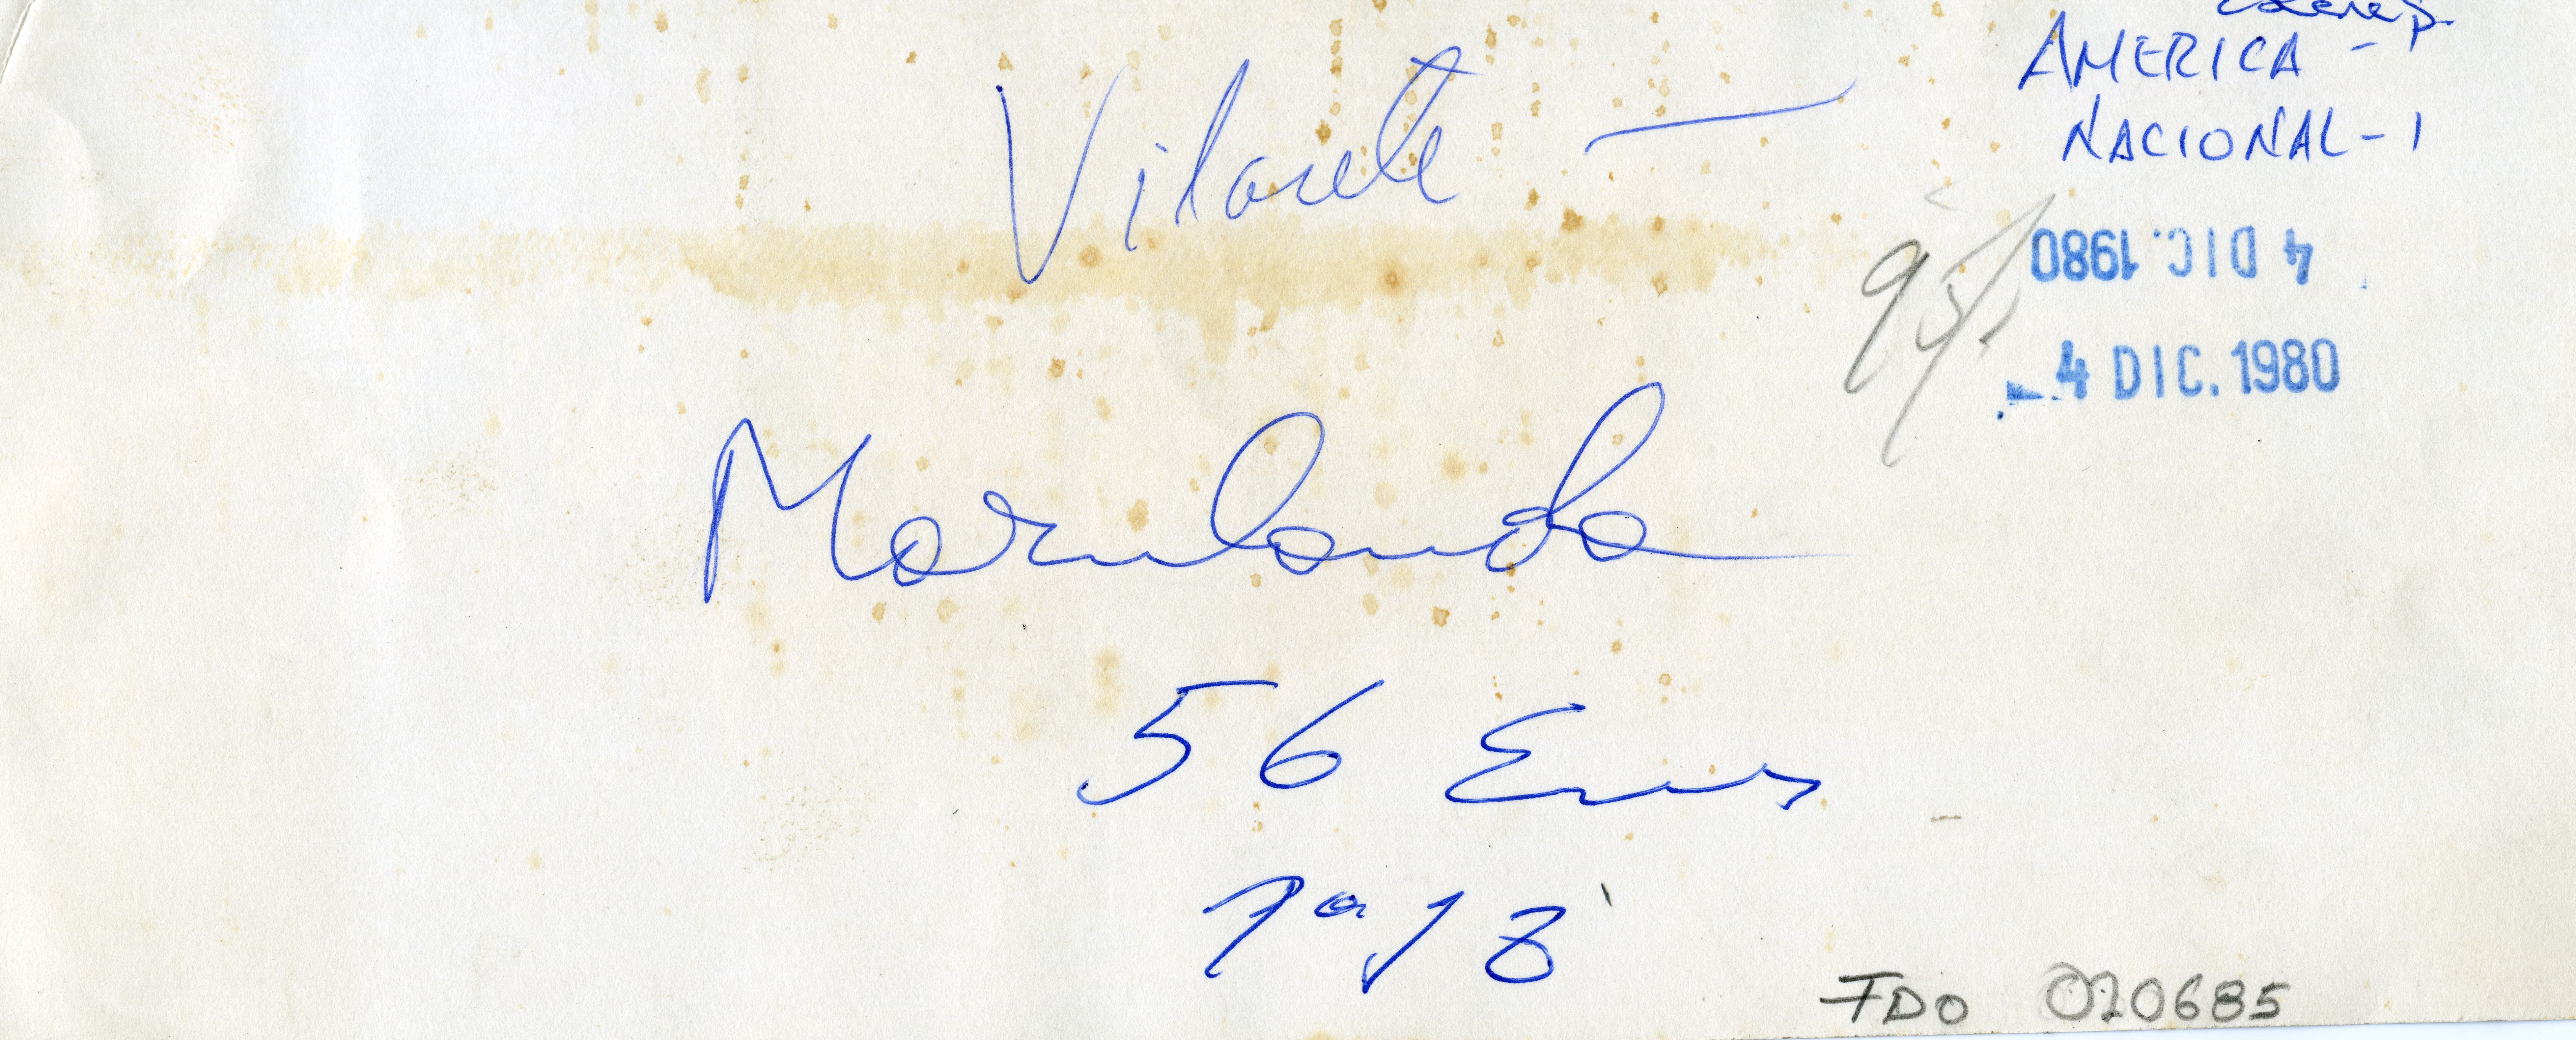 AMERICA - 1
NACIONAL - 1
Vilarete —
4 DIC. 1980
4 DIC. 1980
Marulanda
56 Ems
1a 13
FDO 020685